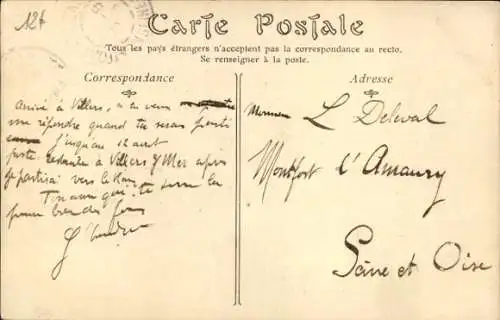 12f
Carte Postale
Tous les pays étrangers n'acceptent pas la correspondance au recto.
Se renseigner à la poste.
Correspondance
Adresse
Arrivé à Villers, si tu veux
me répondre quand tu seras parti
jusqu'au 12 aout
poste restante à Villers s/ Mer après
je partirai vers le
Ton ami qui te serre la
L Deleval
Montfort l'Amaury
Seine et Oise